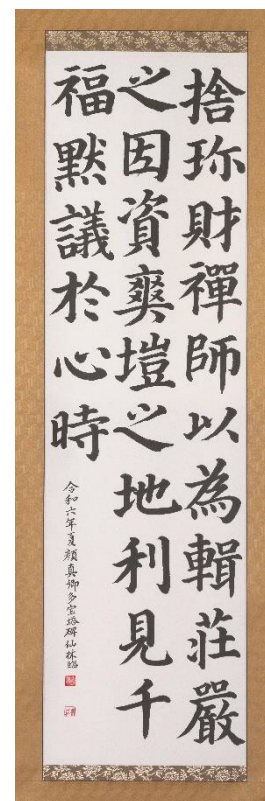 捨珎財禪師以為輯荘嚴
之因資爽塏之地利見千
福默議於心時
令和六年夏顔真卿多宝塔碑仙林臨